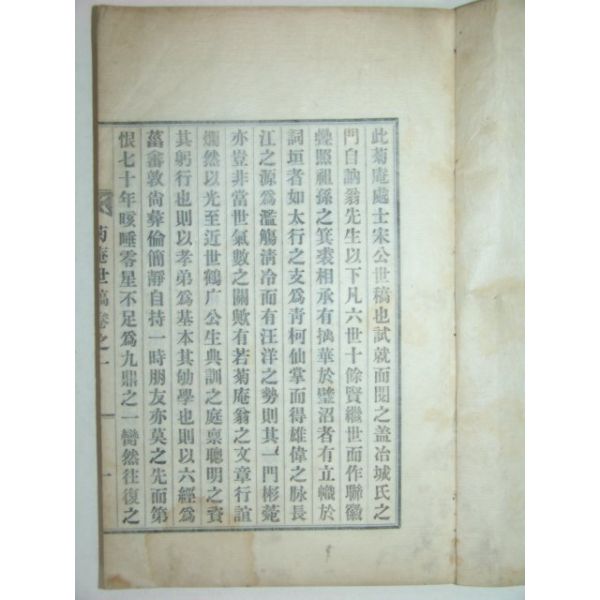 此菊庵處士宋公世稿也試就而閱之盖冶城氏之
門自訥翁先生以下凡六世十餘賢繼世而作聯徽
疊照祖孫之箕裘相承有摛華於璧沼者有立幟於
詞垣者如太行之支爲靑柯仙掌而得雄偉之脉長
江之源爲濫觴淸冷而有汪洋之勢則其一門彬菀
亦豈非當世氣數之關歟有若菊庵翁之文章行誼
爛然以光至近世鶴广公生典訓之庭禀聰明之資
其躬行也則以孝弟爲基本其劬學也則以六經爲
菑畬敦尙彝倫簡靜自持一時朋友亦莫之先而第
恨七十年咳唾零星不足爲九鼎之一臠然往復之
菊庵世稿卷之一
一